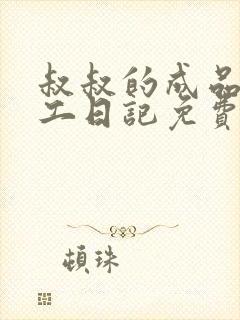 叔叔的成品
工日記免費
頓珠